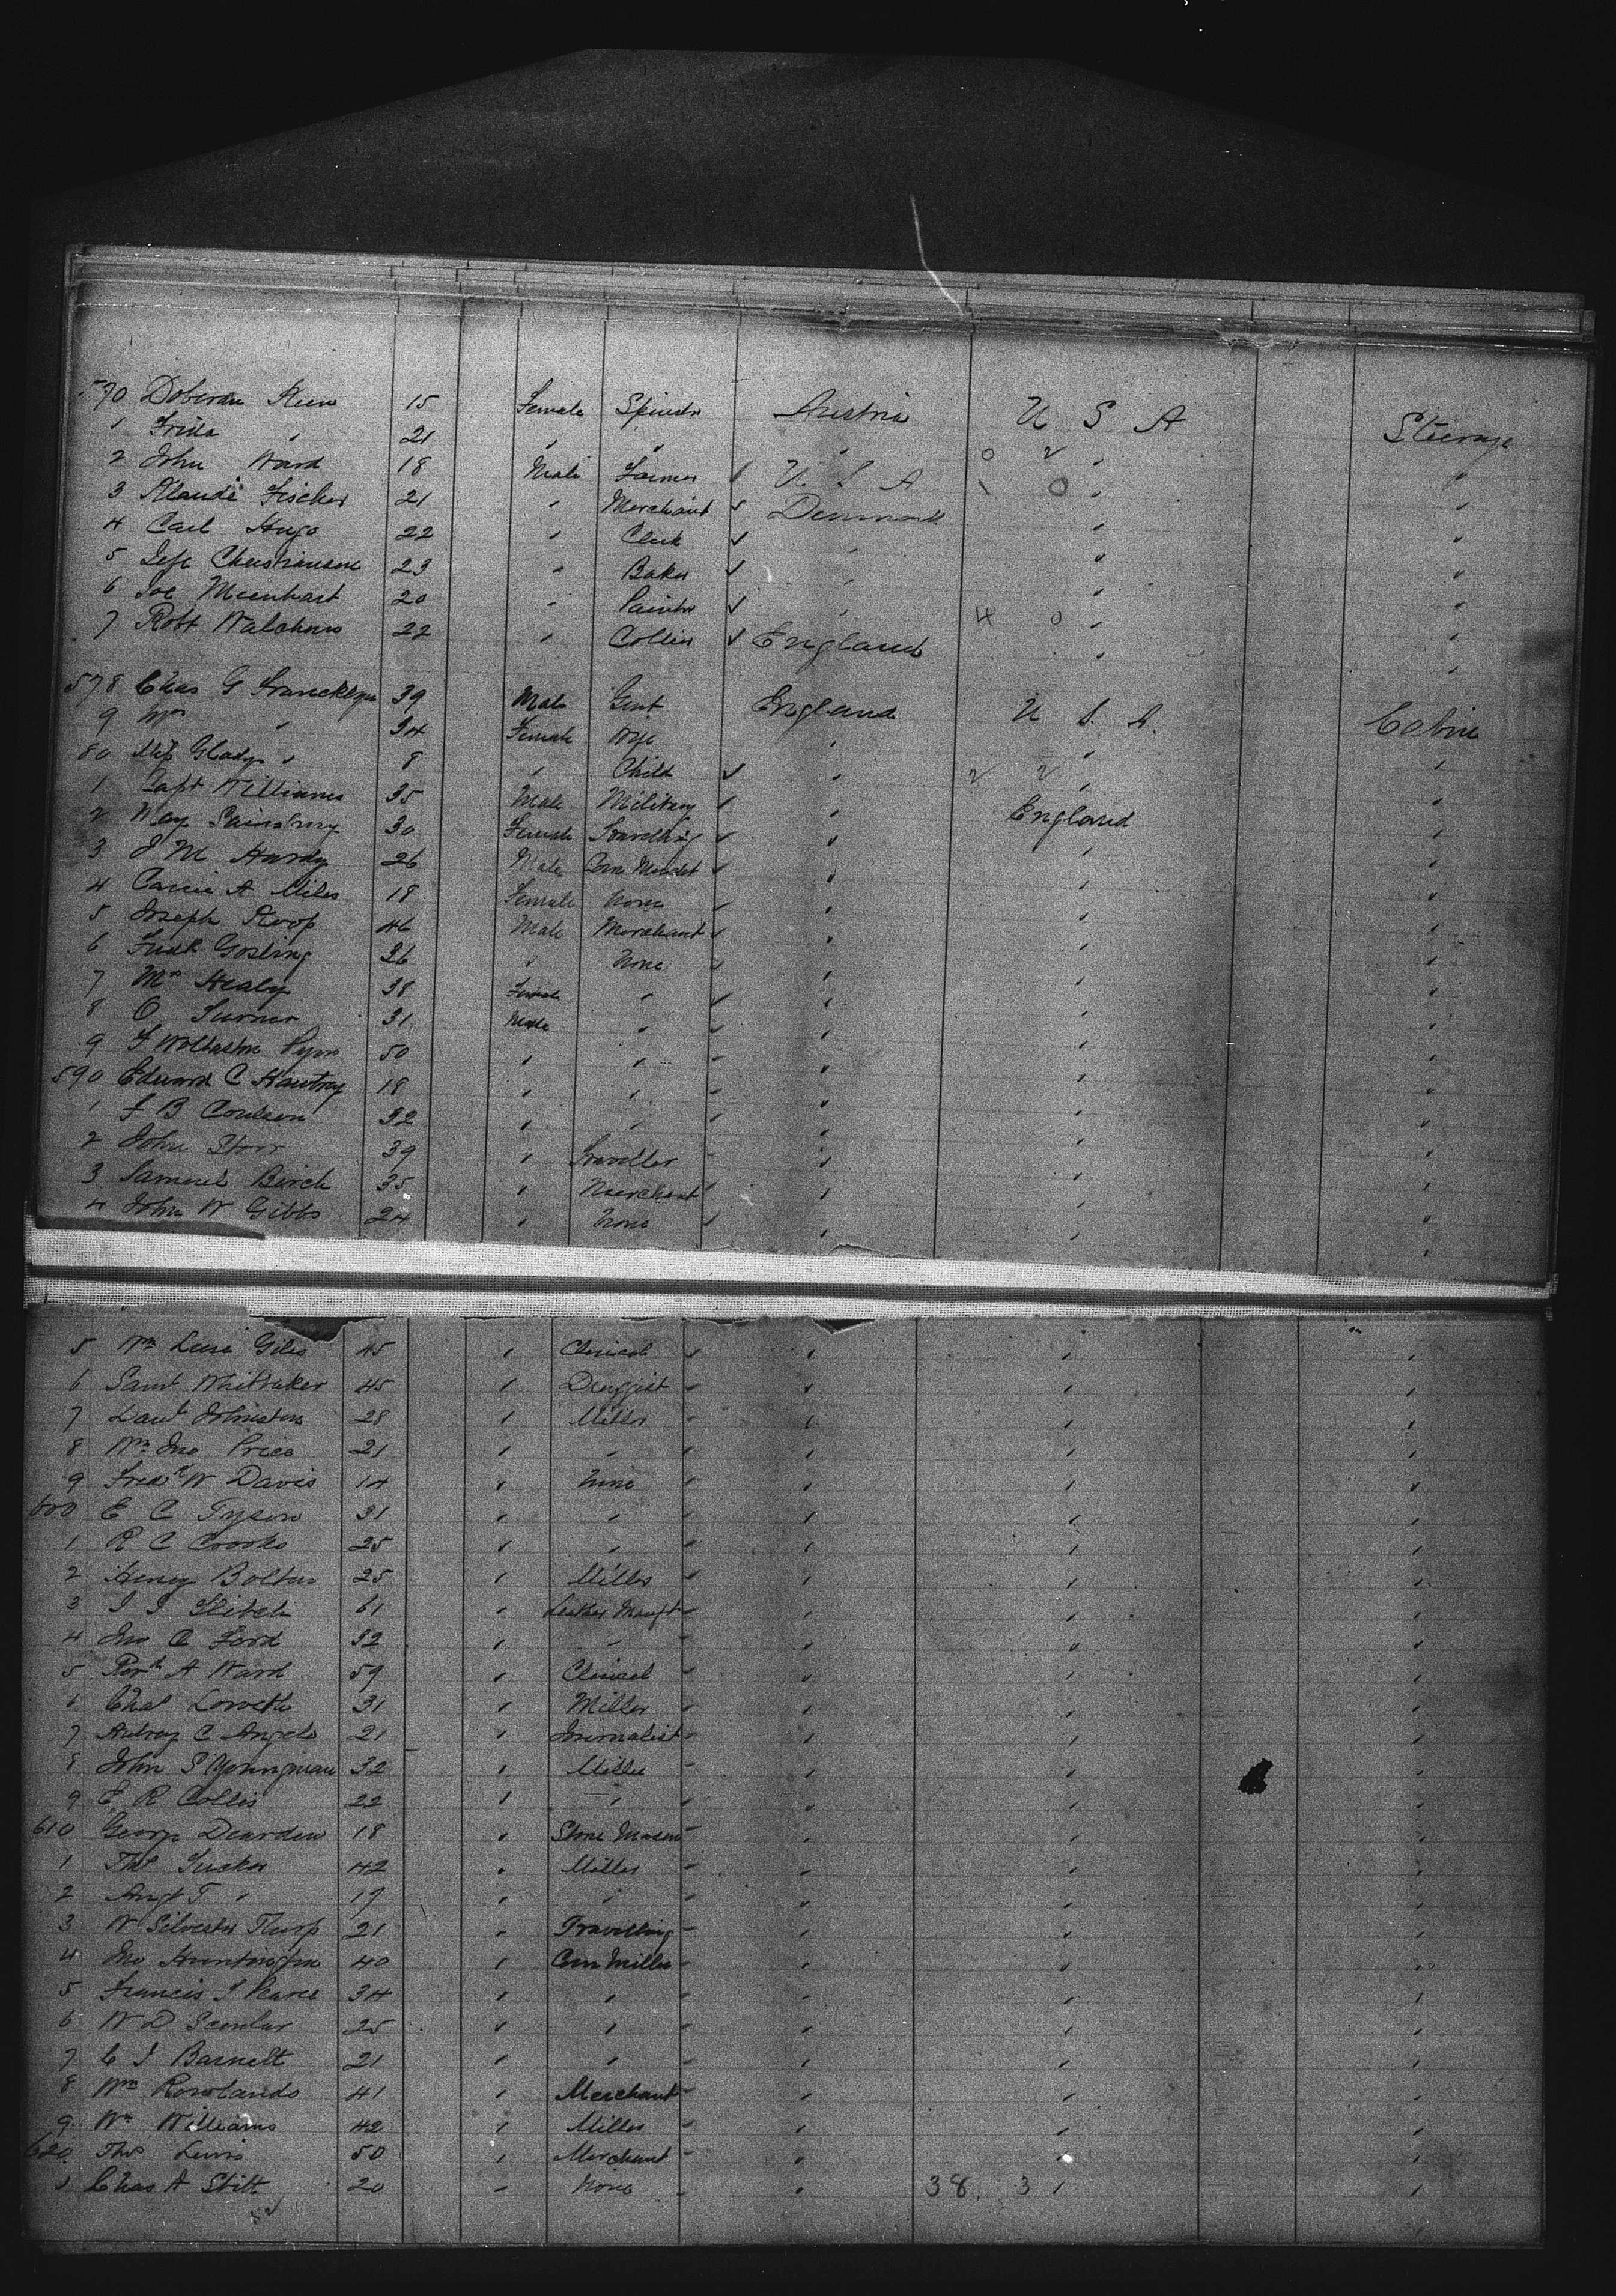 570 Doberan 15 Female Spinstr Austria U S A Steerage
1 Frida " 21 " " " 0 2 " "
2 John Ward 18 Male Farmer U. S. A 1 0 " "
3 Klaudi Fischer 21 " Merchant Denmark " "
4 Carl Hugo 22 " Clerk " " "
5 Christiansen 23 " Baker " " "
6 Joe Meenhart 20 " Painter " 4 0 " "
7 Robt 22 " Collier England " "
578 Chas G Francklyn 39 Male Gent England U. S. A. Cabin
9 Mrs " 34 Female Wife " " "
80 Miss Gladys " 8 " Child " 2 2 " "
1 Capt Williams 35 Male Military " England "
2 May Sainsbury 30 Female Travelling " " "
3 J M Hardy 26 Male Corn Mercht " " "
4 Carrie A Miles 18 Female None " " "
5 Joseph Roop 46 Male Merchant " " "
6 Fredk Gosling 36 " None " " "
7 Mrs Healy 38 Female " " " "
8 O Turner 31 Male " " " "
9 F Wollaston Pym 50 " " " " "
590 Edward C Hawtrey 18 " " " " "
1 F B Coulson 32 " " " " "
2 John Storr 39 " Traveller " " "
3 Samuel Birch 35 " Merchant " " "
4 John W Gibbs 24 " None " " "
5 Wm Giles 45 " Clerical " " "
6 Saml Whittaker 45 " Druggist " " "
7 Davd Johnston 28 " Miller " " "
8 Wm Jno Price 21 " " " " "
9 Fredk W Davis 14 " None " " "
600 E C Tyson 31 " " " " "
1 R C Crooks 25 " " " " "
2 Henry Bolton 25 " Miller " " "
3 61 " Leather Manuft " " "
4 Jno C Ford 32 " " " " "
5 A Ward 59 " Clerical " " "
6 Chas Lorveth 31 " Miller " " "
7 Aubrey C Angelo 21 " Journalist " " "
8 John S Youngman 32 " Miller " " "
9 E R Collis 22 " " " " "
610 George Dearden 18 " Stone Mason " " "
1 Thos Tucker 42 " Miller " " "
2 Augt T " 19 " " " " "
3 W Silvester Thorp 21 " Travelling " " "
4 Jno Huntington 40 " Corn Miller " " "
5 Francis J Pearce 34 " " " " "
6 W D Scoular 25 " " " " "
7 C J Barnett 21 " " " " "
8 Wm Rowlands 41 " Merchant " " "
9 Wm Williams 42 " Miller " " "
620 Thos Lewis 50 " Merchant " " "
1 Chas A Stitt 20 " None " 38. 3 " "